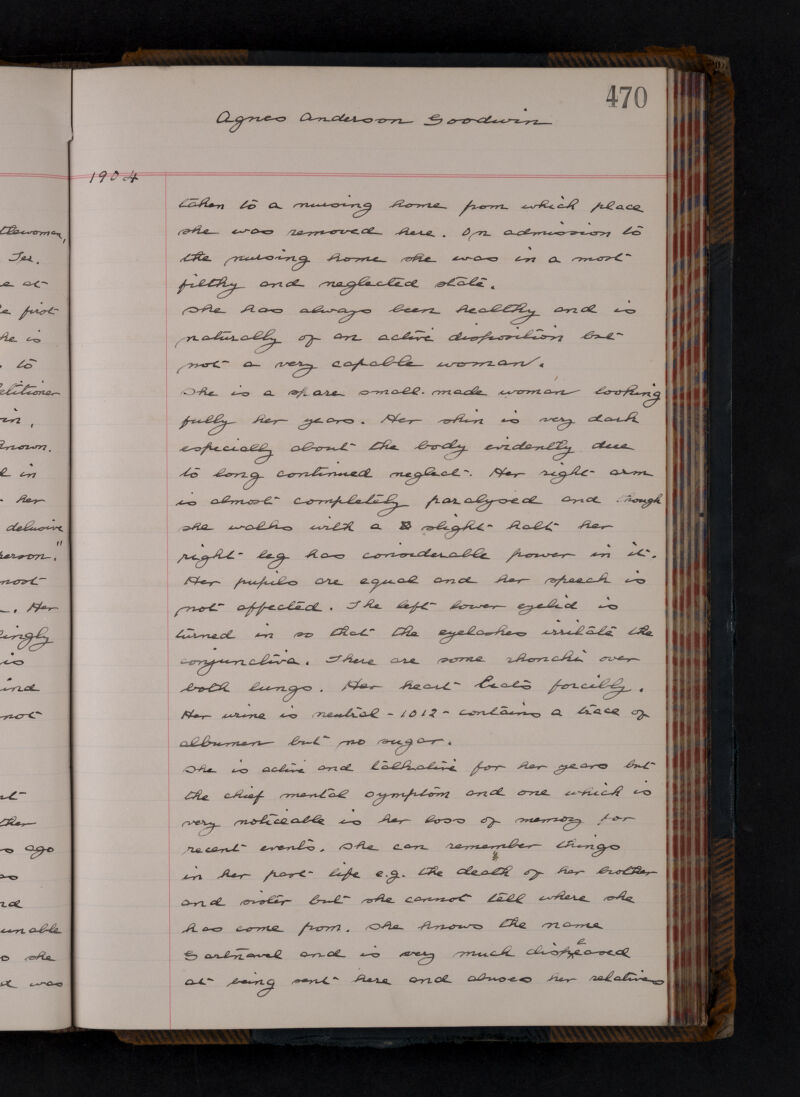 470
Agnes Anderson Goodwin
1904
taken to a nursing home from which place
she was removed here. On admission to
the nursing home she was in a most
filthy and neglected state.
She has always been healthy and is
naturally of an active disposition but
not a very capable woman.
She is a spare small-made woman looking
fully her years. Her skin is very dark
especially about the body evidently due
to long continued neglect. Her right arm
is almost completely paralysed and though
she walks with a slight halt her
right leg has considerable power in it.
Her pupils are equal and her speech is
not affected. The left lower eyelid is
turned in so that the eyelashes irritate the
conjunctiva. There are some rhonchi over
both lungs. Her heart beats forcibly.
Her urine is neutral - 1012 - contains a trace of
albumen but no sugar.
She is active and talkative for her years but
the chief mental symptom and one which is
very noticeable is her loss of memory for
recent events. She can remember things
in her past life e.g. the death of her brother
and sister but she cannot tell where she
has come from. She knows the name
Gartnavel and is very much displeased
at being sent here and abuses her relatives
tlewoman,
Ter.
e at
e first
he is
to
etitioner
in,
known.
d in
her
delusive
person."
most
. Her
lingly
is
ind
not
ther
s ago
so
nd
unable
she
was